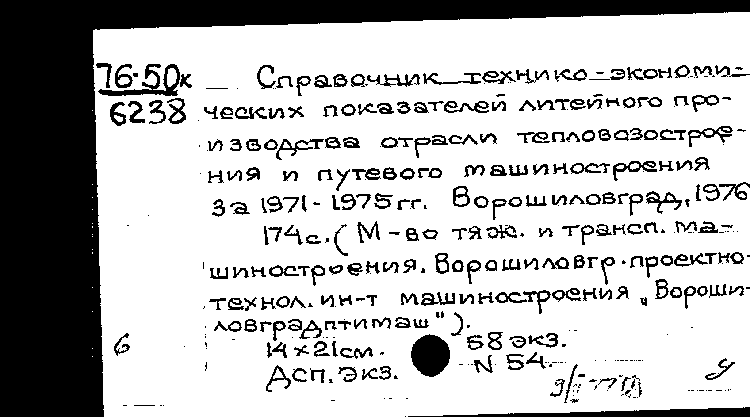 76-50к
6238
Справочник технико-экономи-
ческих показателей литейного про-
изводства отрасли тепловозострое-
ния и путевого машиностроения
за 1971-1975 гг. Ворошиловград, 1976
174 с. ( М-во тяж. и трансп. ма-
шиностроения. Ворошиловгр. проектно-
технол. ин-т машиностроения „Вороши-
ловградптимаш").
6
14 х 21 см. 58 экз.
Дсп. экз. N 54.